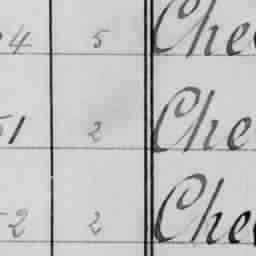 4 5 Che
51 2 Che
52 2 Che